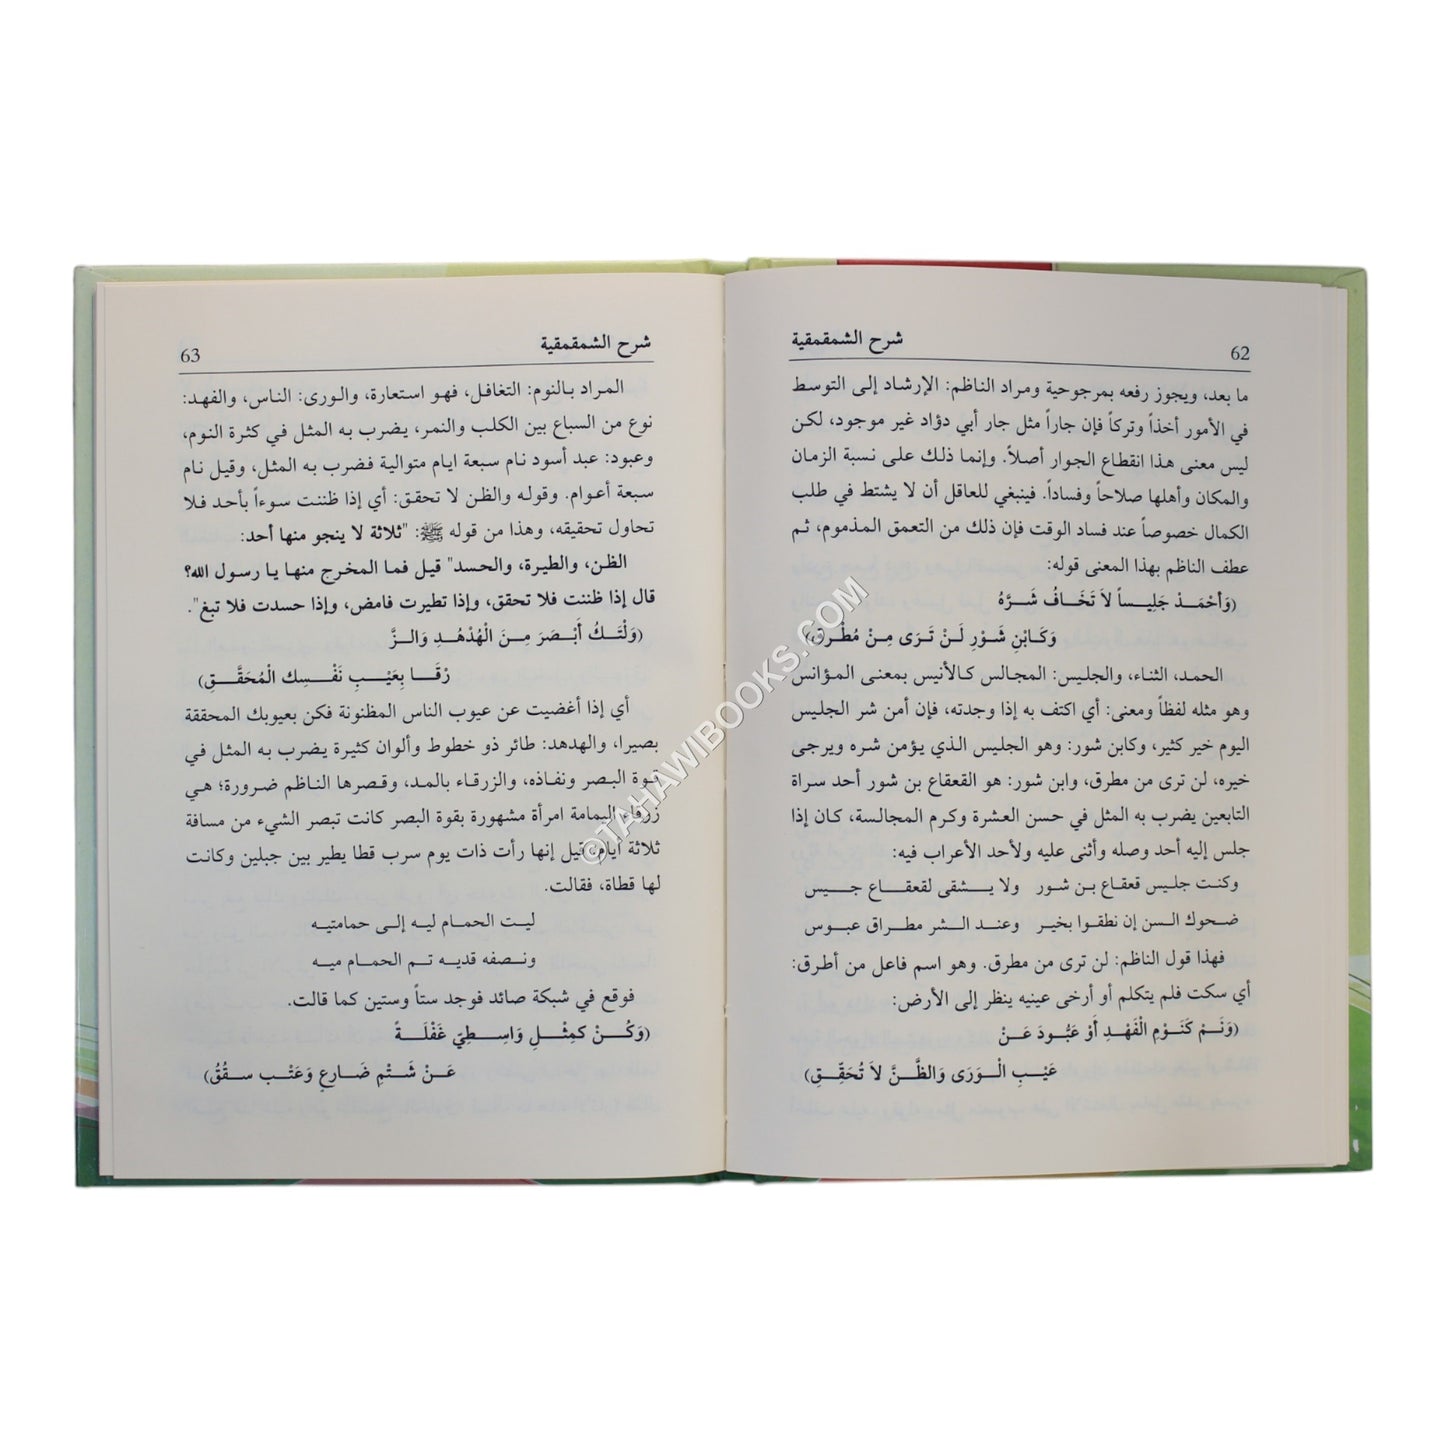 شرح الشمقمقية
62
ما بعد، ويجوز رفعه بمرجوحية ومراد الناظم: الإرشاد إلى التوسط
في الأمور أخذاً وتركاً فإن جاراً مثل جار أبي دؤاد غير موجود، لكن
ليس معنى هذا انقطاع الجوار أصلاً. وإنما ذلك على نسبة الزمان
والمكان وأهلها صلاحاً وفساداً. فينبغي للعاقل أن لا يشتط في طلب
الكمال خصوصاً عند فساد الوقت فإن ذلك من التعمق المذموم، ثم
عطف الناظم بهذا المعنى قوله:
(وَأحْمَدْ جَلِيساً لاَ تَخَافُ شَرَّهُ
وَكَابْنِ شَوْرِ لَنْ تَرَى مِنْ مُطْرِقِ)
الحمد، الثناء، والجليس: المجالس كالأنيس بمعنى المؤانس
وهو مثله لفظاً ومعنى: أي اكتف به إذا وجدته، فإن أمن شر الجليس
اليوم خير كثير، وكابن شور: وهو الجليس الذي يؤمن شره ويرجى
خيره، لن ترى من مطرق، وابن شور: هو القعقاع بن شور أحد سراة
التابعين يضرب به المثل في حسن العشرة وكرم المجالسة، كان إذا
جلس إليه أحد وصله وأثنى عليه ولأحد الأعراب فيه:
وكنت جليس قعقاع بن شور ولا يشقى لقعقاع جـيس
ضحوك السن إن نطقوا بخير وعند الشر مطراق عبوس
فهذا قول الناظم: لن ترى من مطرق. وهو اسم فاعل من أطرق:
أي سكت فلم يتكلم أو أرخى عينيه ينظر إلى الأرض:
(وَنَمْ كَنَوْمِ الْفَهْدِ أَوْ عَبُّودَ عَنْ
عَيْبِ الْوَرَى وَالظَّنَّ لاَ تُحَقِّقِ)
شرح الشمقمقية
63
المراد بالنوم: التغافل، فهو استعارة، والورى: الناس، والفهد:
نوع من السباع بين الكلب والنمر، يضرب به المثل في كثرة النوم،
وعبود: عبد أسود نام سبعة ايام متوالية فضرب به المثل، وقيل نام
سبعة أعوام. وقوله والظن لا تحقق: أي إذا ظننت سوءاً بأحد فلا
تحاول تحقيقه، وهذا من قوله ﷺ: "ثلاثة لا ينجو منها أحد:
الظن، والطيرة، والحسد" قيل فما المخرج منها يا رسول الله؟
قال إذا ظننت فلا تحقق، وإذا تطيرت فامض، وإذا حسدت فلا تبغ".
(وَلْتَكُ أَبْصَرَ مِنَ الْهُدْهُدِ وَالزَّ
رْقَا بِعَيْبِ نَفْسِك الْمُحَقَّقِ)
أي إذا أغضيت عن عيوب الناس المظنونة فكن بعيوبك المحققة
بصيرا، والهدهد: طائر ذو خطوط وألوان كثيرة يضرب به المثل في
قوة البصر ونفاذه، والزرقاء بالمد، وقصرها الناظم ضرورة؛ هي
زرقاء اليمامة امرأة مشهورة بقوة البصر كانت تبصر الشيء من مسافة
ثلاثة أيام، قيل إنها رأت ذات يوم سرب قطا يطير بين جبلين وكانت
لها قطاة، فقالت.
ليت الحمام ليه إلى حمامتيه
ونصفه قديه تم الحمام ميه
فوقع في شبكة صائد فوجد ستاً وستين كما قالت.
(وَكُنْ كمِثْلِ وَاسِطِيِّ غَفْلَةً
عَنْ شَتْمِ ضَارِعٍ وَعَتْبِ سقُقُ)
©TAHAWIBOOKS.COM